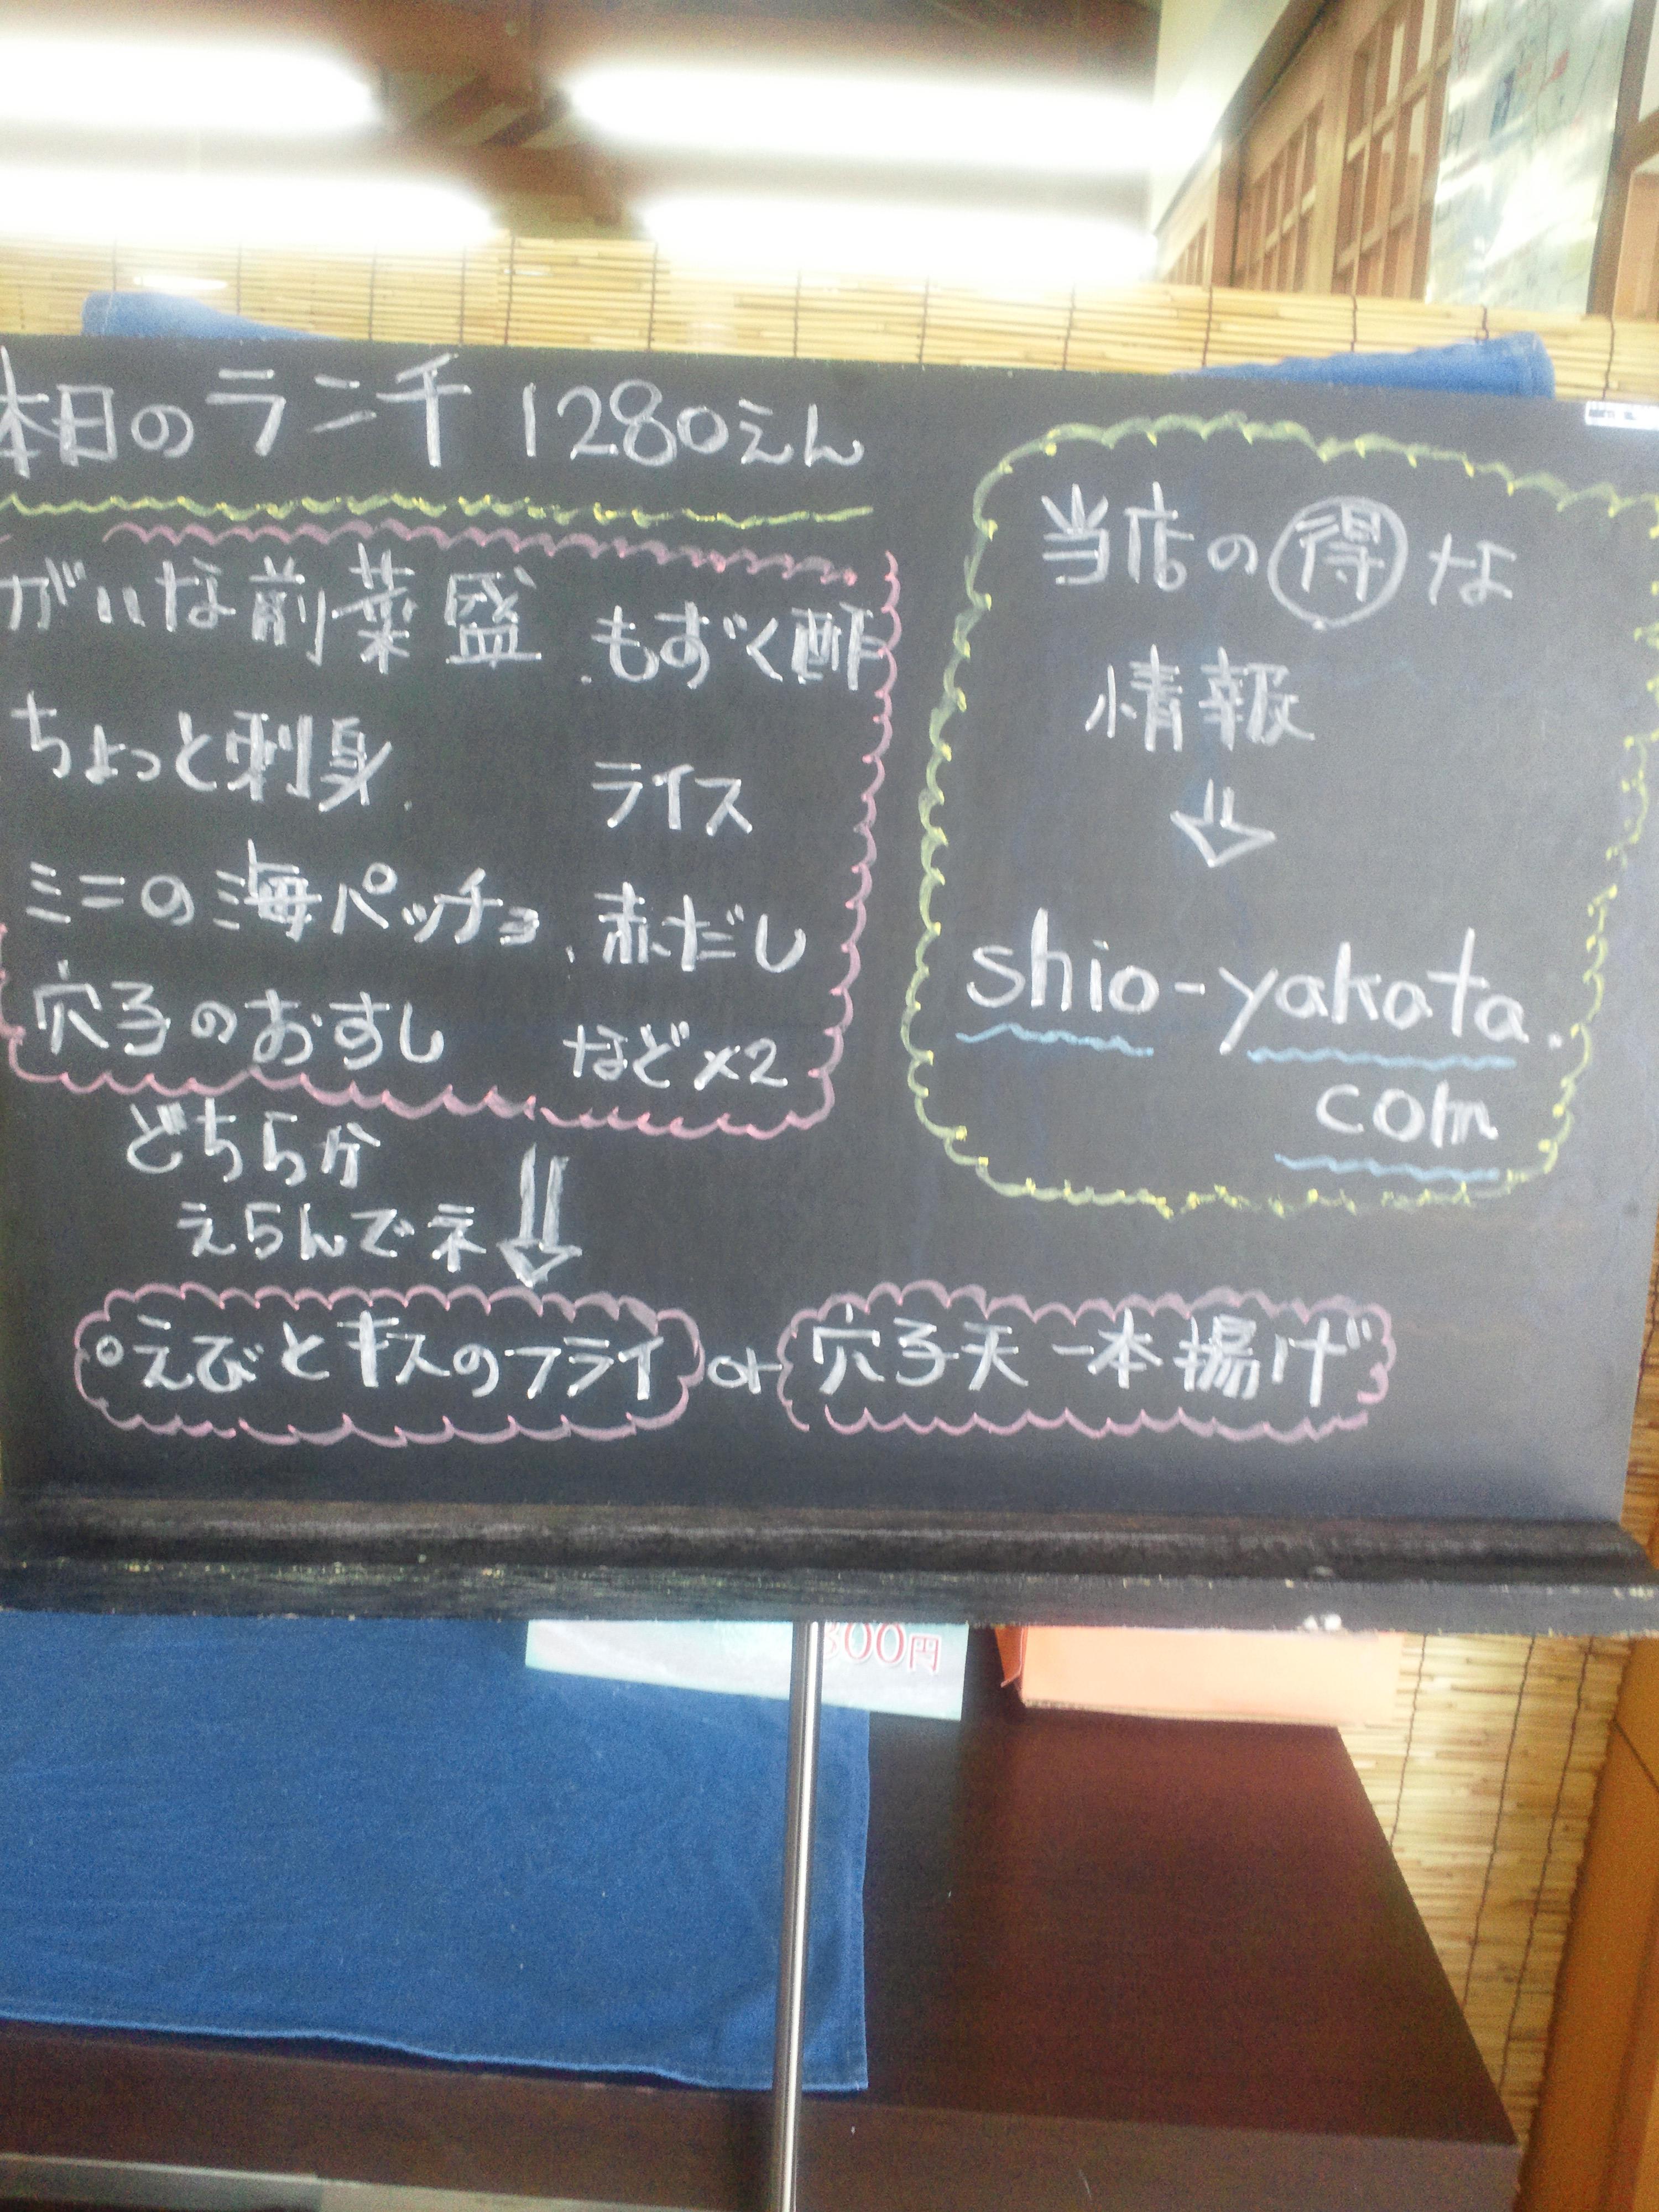 本日のランチ 1280えん
がいな前菜盛
ちょっと刺身
ミニの海ペッチョ
穴子のおすし
もずく酢
ライス
赤だし
など×2
どちらか
えらんでネ
えびとキスのフライ or 穴子天一本揚げ
当店の得な
情報
shio-yakata.
com
300円